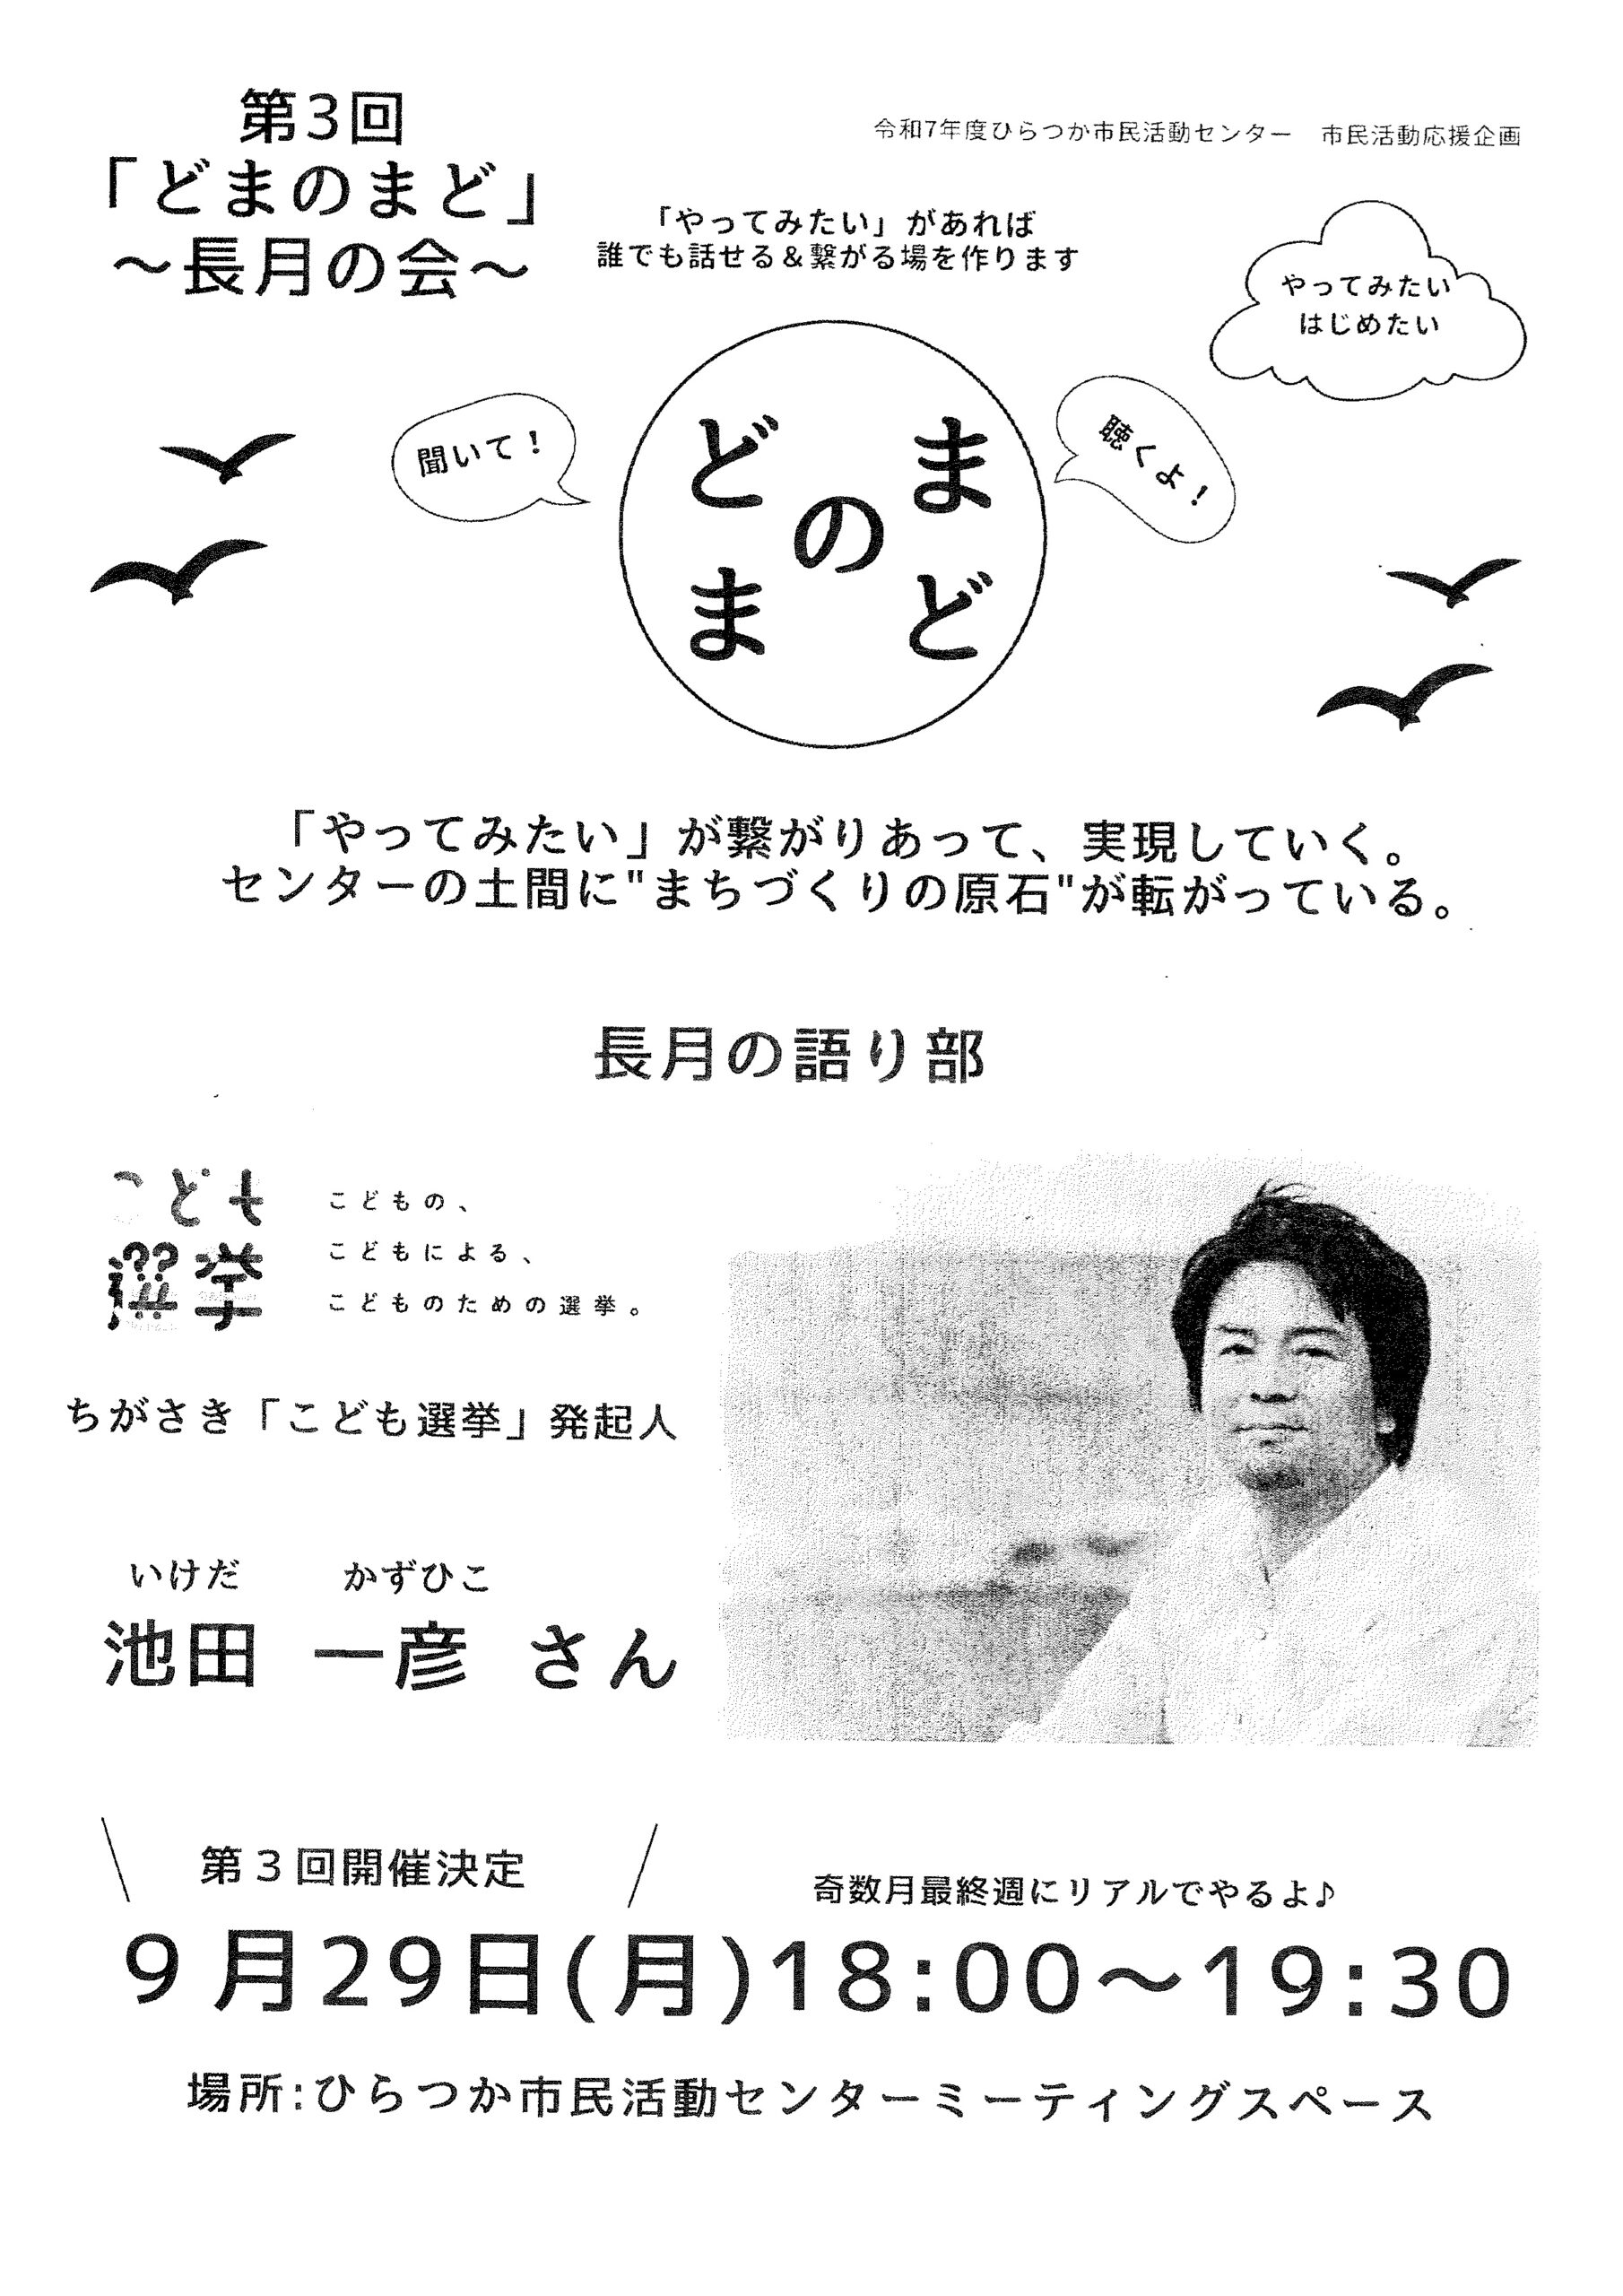 第3回
「どまのまど」
～長月の会～
令和7年度ひらつか市民活動センター　市民活動応援企画
「やってみたい」があれば
誰でも話せる＆繋がる場を作ります
やってみたい
はじめたい
聞いて！
どまのまど
聴くよ！
「やってみたい」が繋がりあって、実現していく。
センターの土間に"まちづくりの原石"が転がっている。
長月の語り部
こども
選挙
こどもの、
こどもによる、
こどものための選挙。
ちがさき「こども選挙」発起人
いけだ　かずひこ
池田　一彦　さん
第３回開催決定
奇数月最終週にリアルでやるよ♪
9月29日(月)18:00～19:30
場所:ひらつか市民活動センターミーティングスペース